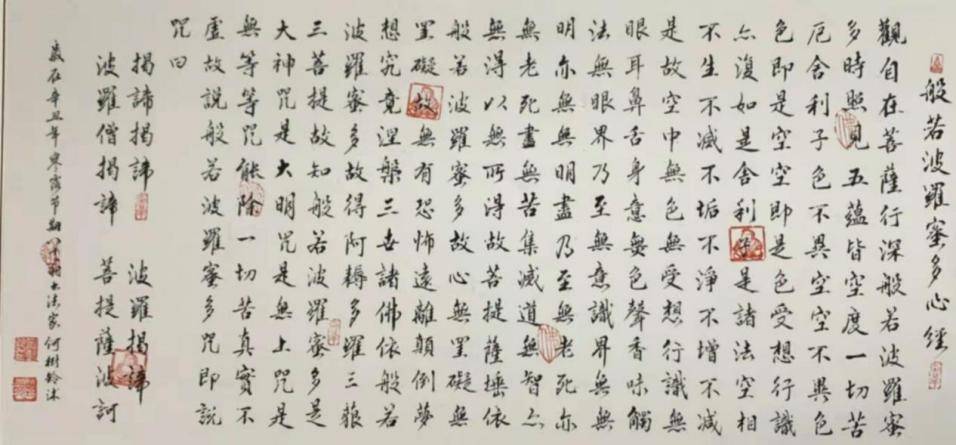 般若波羅蜜多心經
觀自在菩薩行深般若波羅蜜
多時照見五蘊皆空度一切苦
厄舍利子色不異空空不異色
色即是空空即是色受想行識
亦復如是舍利子是諸法空相
不生不滅不垢不淨不增不減
是故空中無色無受想行識無
眼耳鼻舌身意無色聲香味觸
法無眼界乃至無意識界無無
明亦無無明盡乃至無老死亦
無老死盡無苦集滅道無智亦
無得以無所得故菩提薩埵依
般若波羅蜜多故心無罣礙無
罣礙故無有恐怖遠離顛倒夢
想究竟涅槃三世諸佛依般若
波羅蜜多故得阿耨多羅三藐
三菩提故知般若波羅蜜多是
大神咒是大明咒是無上咒是
無等等咒能除一切苦真實不
虛故說般若波羅蜜多咒即說
咒曰
揭諦揭諦 波羅揭諦
波羅僧揭諦 菩提薩波訶
歲在辛丑年寒露節期 法家何樹 沐